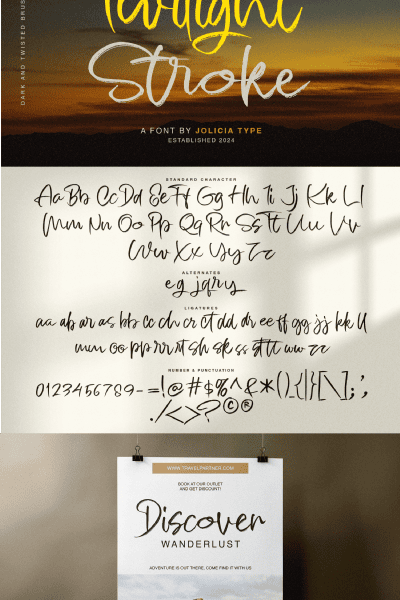 Twilight
Stroke
DARK AND TWISTED BRUS
A FONT BY JOLICIA TYPE
ESTABLISHED 2024
STANDARD CHARACTER
Aa Bb Cc Dd Ee Ff Gg Hh Ii Jj Kk Ll
Mm Nn Oo Pp Qq Rr Ss Tt Uu Vv
Ww Xx Yy Zz
ALTERNATES
eg jqry
LIGATURES
aa ab ar as bb cc ch cr ct dd dr ee ff gg jj kk ll
mm oo pp rr rt sh sk ss st tt ww zz
NUMBER & PUNCTUATION
0123456789-=!@#$%^&*()_{|}[\];',
./<>?©®
WWW.TRAVELPARTNER.COM
BOOK AT OUR OUTLET
AND GET DISCOUNT!
Discover
WANDERLUST
ADVENTURE IS OUT THERE, COME FIND IT WITH US